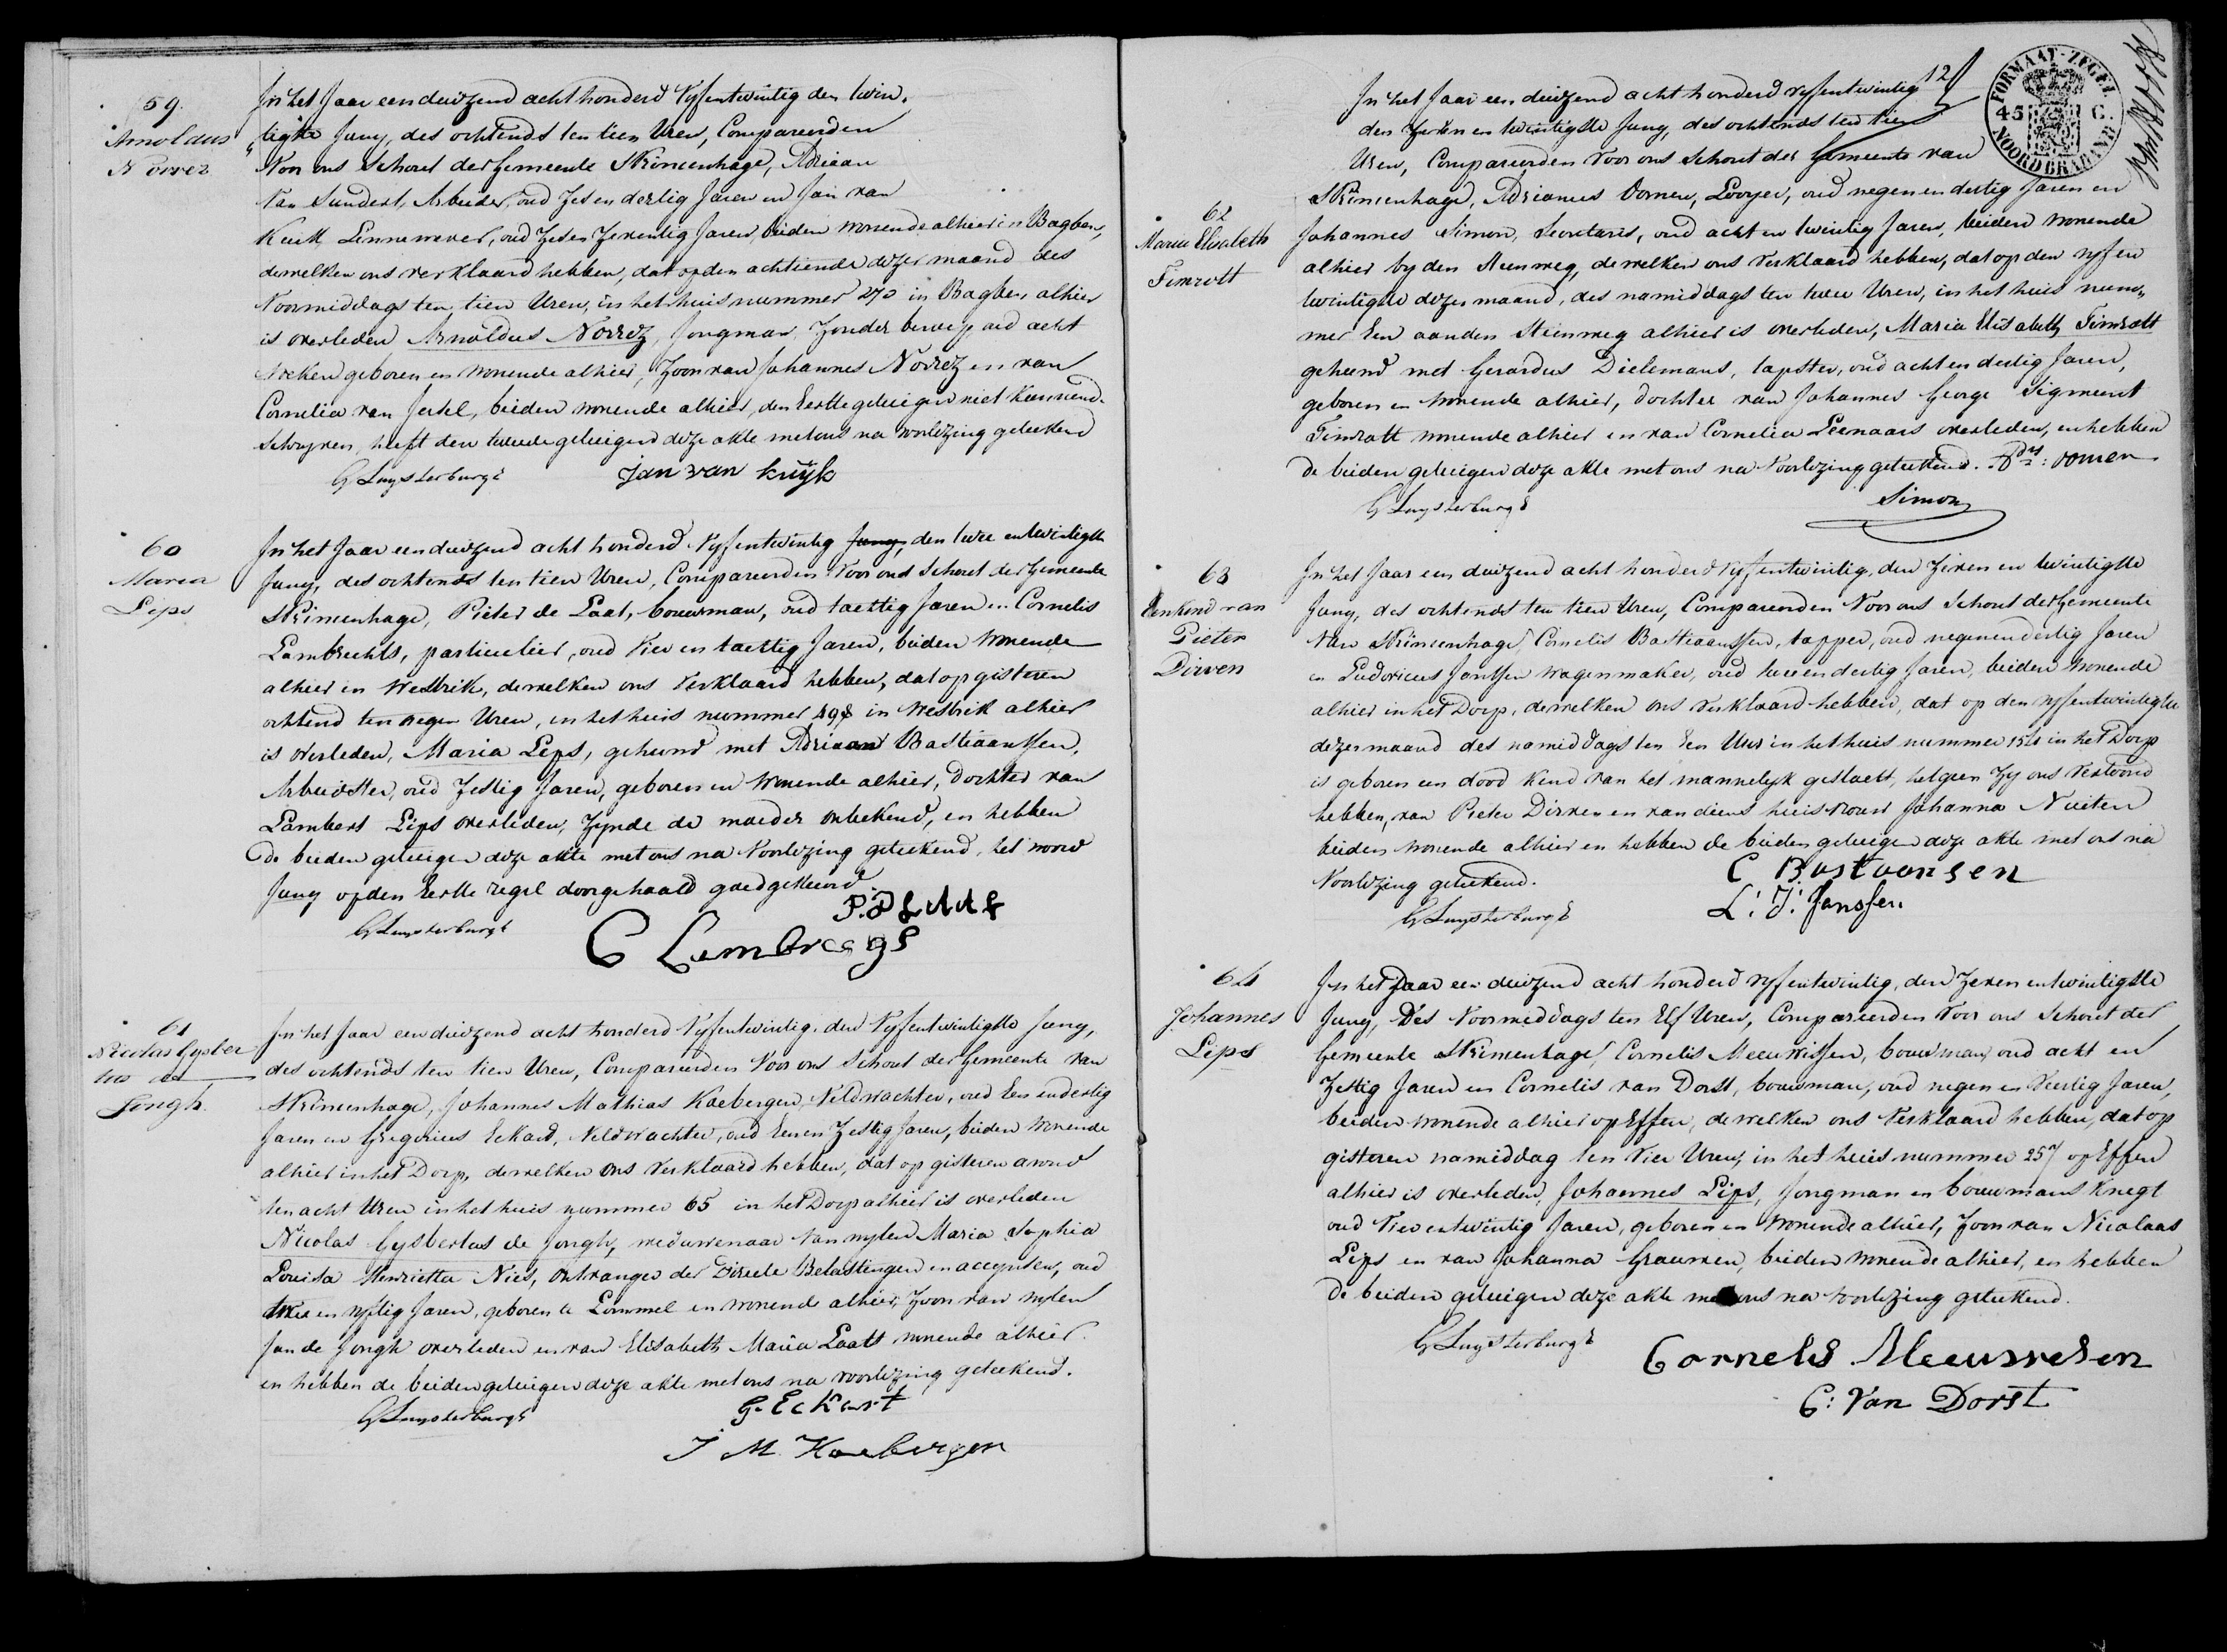 59.
Arnoldus
Norrez
In het Jaar een duizend acht honderd Vyfentwintig den twin„
„tigste Juny, des ochtends ten tien Uren, Compareerden
Voor ons Schout der Gemeente Princenhage, Adriaan
Van Sundert, Arbeider, oud Zes en dertig Jaren en Jan van
Kuik, Linnewever, oud Zes en Zeventig Jaren, beiden wonende alhier in Bagben,
dewelken ons verklaard hebben, dat op den achtiende dezer maand des
Voormiddags ten tien Uren, in het huis nummer 270 in Bagben alhier
is overleden Arnoldus Norrez, Jongman, Zonder beroep, oud acht
weken geboren en wonende alhier, Zoon van Johannes Norrez en van
Cornelia van Jerkel, beiden wonende alhier, den Eerste getuigen niet kunnend
Schryven, heeft den tweede getuigend deze akte met ons na voorlezing geteekend
G Luysterburgh
Jan van kuijk
60
Maria
Lips
In het Jaar een duizend acht honderd Vyfentwintig Juny, den twee entwintigste
Juny, des ochtends ten tien Uren, Compareerden Voor ons Schout der Gemeente
Princenhage, Pieter de Laat, bouwman, oud taettig Jaren en Cornelis
Lambrechts, particulier, oud Vier en taettig Jaren, beiden wonende
alhier in Westrik, dewelken ons Verklaard hebben, dat op gisteren
ochtend ten negen Uren, in het huis nummer 498 in Westrik alhier
is overleden, Maria Lips, gehuwd met Adriaan Bastiaanssen,
Arbeidster, oud Zestig Jaren, geboren en wonende alhier, Dochter van
Lambert Lips overleden, Zynde de moeder onbekend, en hebben
De beiden getuigen deze akte met ons na Voorlezing geteekend, het woord
Juny op den Eerste regel doorgehaald goedgekeurd
G Luysterburgh
P. D LAAt
C Lambregs
61
Nicolas Gysber
tus de
Jongh
In het Jaar een duizend acht honderd Vyfentwintig, den Vyfentwintigste Juny,
des ochtends ten tien Uren, Compareerden Voor ons Schout der Gemeente van
Princenhage, Johannes Mathias Kaebergen, Veldwachter, oud Een en dertig
Jaren en Gregorius Eckard, Veldwachter, oud Een en Zestig Jaren, beiden wonende
alhier in het Dorp, dewelken ons Verklaard hebben, dat op gisteren avond
ten acht Uren in het huis nummer 65 in het Dorp alhier is overleden
Nicolas Gysbertus de Jongh, weduwenaar van wylen Maria Sophia
Louisa Henrietta Nies, Ontvanger der Directe Belastingen en accynsen, oud
twee en vyftig Jaren, geboren te Lommel en wonende alhier, Zoon van wylen
Jan de Jongh overleden en van Elisabeth Maria Laats wonende alhier.
en hebben de beiden getuigen deze akte met ons na voorlezing geteekend.
G Luysterburgh
G. Eckart
J M Kaebergen
12
FORMAAT-ZEGEL
45 C.
NOORDBRABAND
62
Maria Elisabeth
Timrott
In het Jaar een duizend acht honderd vyfentwintig
den Zeven en twintigste Juny, des ochtends ten tien
Uren, Compareerden Voor ons Schout der Gemeente van
Princenhage, Adrianus Oomen, Looyer, oud negen en dertig Jaren en
Johannes Simon, Secretaris, oud acht en twintig Jaren, beiden wonende
alhier by den Steenweg, dewelken ons Verklaard hebben, dat op den vyf en
twintigste dezer maand, des namiddags ten twee Uren, in het huis num„
mer Een aan den Steenweg alhier is overleden, Maria Elisabeth Timrott
gehuwd met Gerardus Dielemans, tapster, oud acht en dertig Jaren,
geboren en wonende alhier, dochter van Johannes George Sigmunt
Timrott wonende alhier en van Cornelia Leenaars overleden, en hebben
De beiden getuigen deze akte met ons na Voorlezing geteekend. Ads: oomen
G Luysterburgh
Simon
63
Een kind van
Pieter
Dirven
In het Jaar een duizend acht honderd Vyfentwintig, den Zeven en twintigste
Juny, des ochtends ten tien Uren, Compareerden Voor ons Schout der Gemeente
van Princenhage, Cornelis Bastiaanssen, tapper, oud negenendertig Jaren
en Ludovicus Janssen wagenmaker, oud twee en dertig Jaren, beiden wonende
alhier in het Dorp, dewelken ons verklaard hebben, dat op den vyfentwintigste
dezer maand des namiddags ten Een Uur in het huis nummer 154 in het Dorp
is geboren een dood kind van het mannelyk geslacht, hetgeen Zy ons Vertoond
hebben, van Pieter Dirven en van diens huisvrouw Johanna Nuiten
beiden wonende alhier en hebben de beiden getuigen deze akte met ons na
Voorlezing geteekend.
G Luysterburgh
C Bastoonsen
L: J: Janssen
64
Johannes
Lips
In het Jaar een duizend acht honderd vyfentwintig, den Zeven entwintigste
Juny, Des Voormiddags ten Elf Uren, Compareerden Voor ons Schout der
Gemeente Princenhage, Cornelis Meeuwissen, bouwman, oud acht en
Zestig Jaren en Cornelis van Dorst, bouwman, oud negen en Veertig Jaren,
beiden wonende alhier op Effen, dewelken ons Verklaard hebben, dat op
gisteren namiddag ten Vier Uren, in het huis nummer 25 op Effen
alhier is overleden, Johannes Lips, Jongman en bouwmans knegt
oud Vier entwintig Jaren, geboren en wonende alhier, Zoon van Nicolaas
Lips en van Johanna Grauwen, beiden wonende alhier, en hebben
De beiden getuigen deze akte met ons na voorlezing geteekend.
G Luysterburgh
Cornelis Meeuwesen
C: Van Dorst